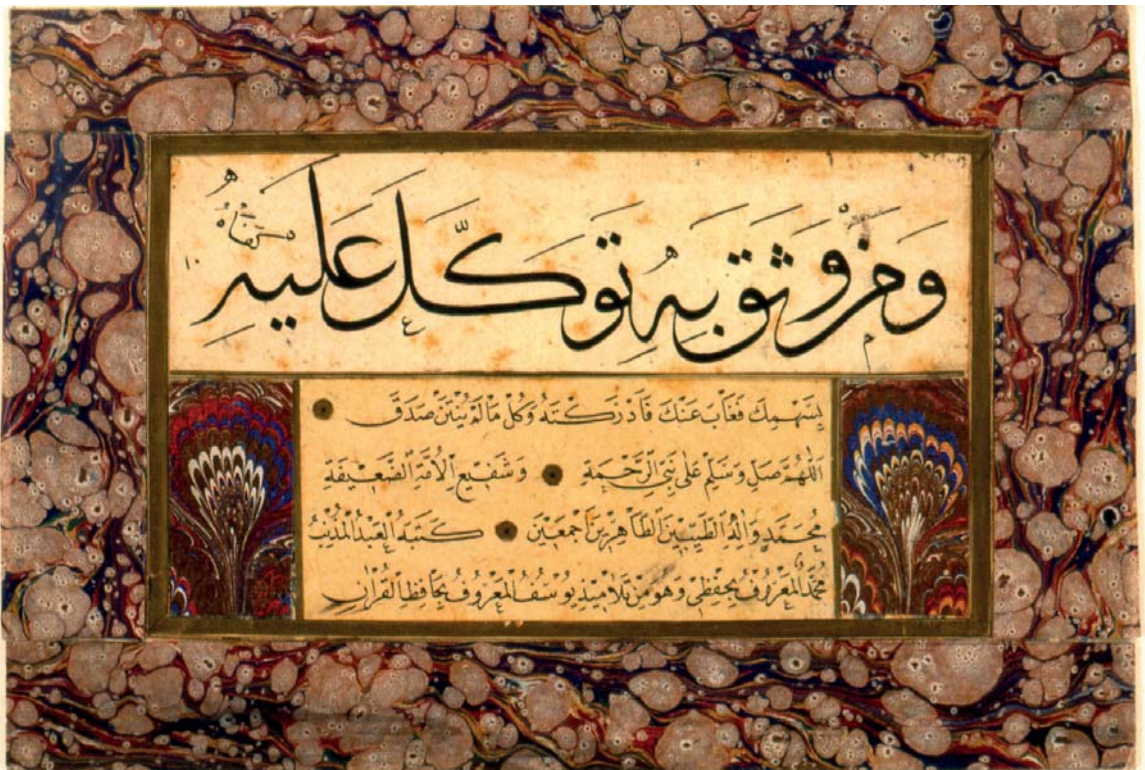 ومن وثق به توكل عليه كفاه
بسهمك فغاب عنك فادركته وكل ما لم ينتن صدق
اللهم صل وسلم على نبي الرحمة وشفيع الامة الضعيفة
محمد واله الطيبين الطاهرين اجمعين كتبه العبد المذنب
محمد المعروف بحفظي وهو من تلاميذ يوسف المعروف بحافظ القران